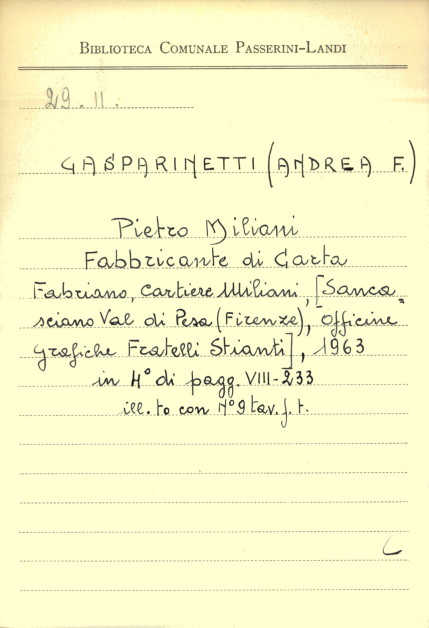 BIBLIOTECA COMUNALE PASSERINI-LANDI
29.11.
GASPARINETTI (ANDREA F.)
Pietro Miliani
Fabbricante di Carta
Fabriano, Cartiere Miliani, [Sanca=
sciano Val di Pesa (Firenze), Officine
grafiche Fratelli Stianti], 1963
in 4° di pagg. VIII-233
ill.to con N° 9 tav. f. t.